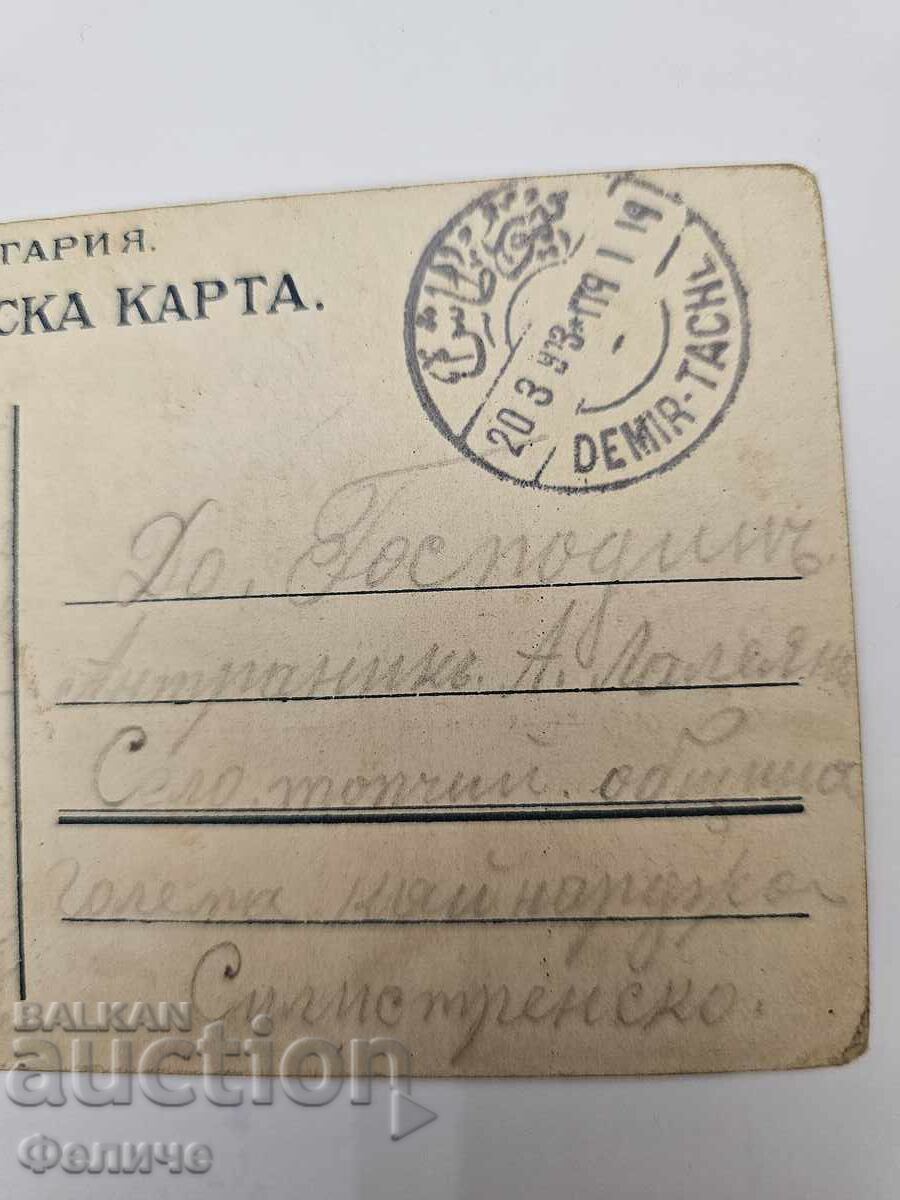 ГАРИЯ.
СКА КАРТА.
DEMIR-TACHL
До. Господинъ
Антраникъ. А. Лалеянъ
Село. топчий. община
Голема кайнарджа
Силистренско.
BALKAN
auction
Феличе